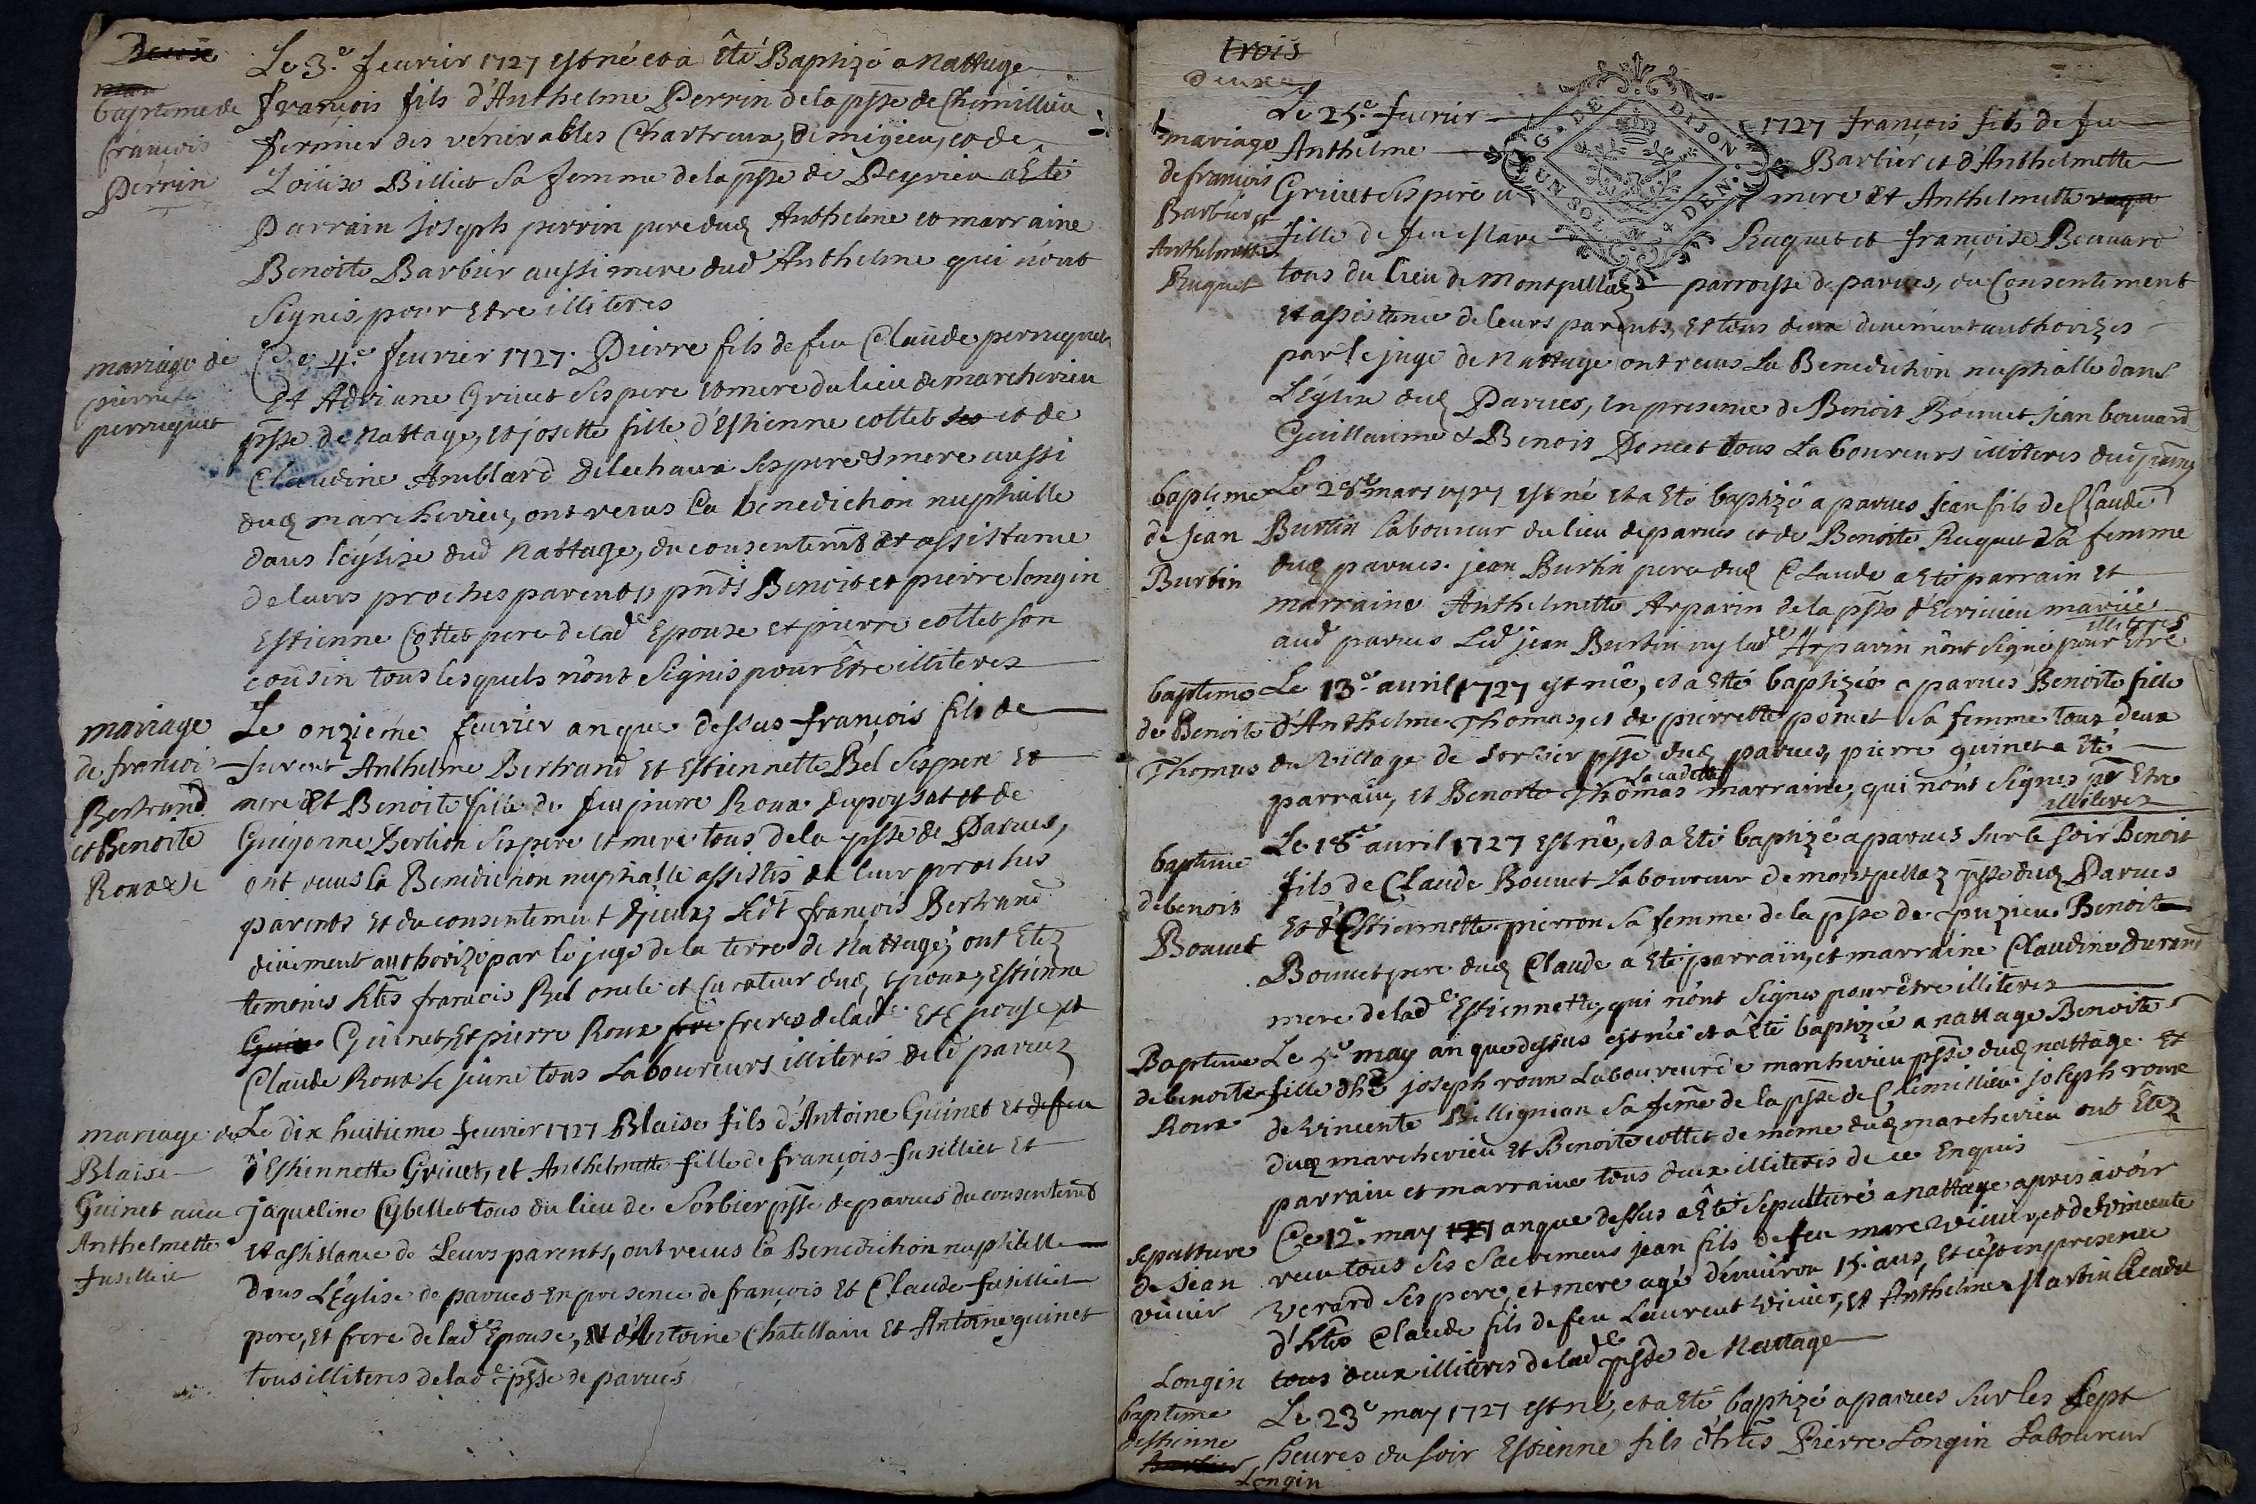 Le 3.e feurier 1727 est né et a êté Baptizé a Nattage
baptême de
françois
Perrin
françois fils d'Anthelme Perrin de la psse de Chemillieu
fermier des venerables Chartreux, de migieu, et de
Loüise Billiet sa femme de la psse de Peyrieu a êté
Parrain joseph perrin pere dud Anthelme et marraine
Benoite Barbier aussi mere dud Anthelme qui n'ont
Signés pour Etre illiteres
mariage de
pierre
perruquet
Ce 4.e feurier 1727. Pierre fils de feu Claude perruquet
Et Adriane Griuet ses pere et mere du lieu de marcherieu
psse de Nattage, et josette fille d'Estienne collet et de
Claudine Amblard de lechaux ses pere et mere aussi
dud marcherieu, ont recus la benediction nuptialle
dans l'église dud Nattage, du consentemt et assistance
de leurs proches parents, pnts Benoit et pierre longin
Estienne Collet pere de lade Epouse et pierre collet son
cousin tous lesquels n'ont Signés pour être illiteres
mariage
de françois
Bertrand
et Benoite
Roux
Le onzieme feurier an que dessus françois fils de
furent Anthelme Bertrand et Estiennette Bel ses pere et
mere Et Benoite fille de feu pierre Roux dupoysat et de
Guigonne Berlion ses pere et mere tous de la psse de Parues,
ont recus la Benediction nuptialle assistés de leur proches
parents et du consentement d'jceux, ledt françois Bertrand
düement authorizé par le juge de la terre de Nattage, ont Etez
temoins htes françois Bel oncle et Curateur dud Epoux, Estienne
Guinet, Et pierre Roux freres de lade Epouse et
Claude Roux le jeune tous Laboureurs illiteres dud paruez
mariage de
Blaise
Guinet auec
Anthelmette
fusilliet
Le dix huitieme feurier 1727 Blaise fils d'Antoine Guinet
d'Estiennette Griuet, et Anthelmette fille de françois fusilliet Et
jaqueline Cybellet tous du lieu de Sorbier psse de parues du consentemt
et assistance de Leurs parents, ont recus la Benediction nuptialle
dans L'Eglise de parues en presence de françois Et Claude fusilliet
pere, Et frere de lade Epouse, et d'Antoine Chatellain Et Antoine guinet
tous illiteres de lade psse de parues
trois
deux
G. DE DIJON
UN SOL 4 DEN.
mariage
de françois
Barbier et
Anthelmette
Ruquet
Le 25.e feurier 1727 françois fils de feu
Anthelme Barbier et d'Anthelmette
Griuet ses pere et mere Et Anthelmette
fille de feu Ruquet et françoise Bouuard
tous du lieu de Montpellaz parroisse de parues, du Consentement
Et assistance de leurs parents, Et tous deux deuement authorizés
par le juge de Nattage ont recus La Benediction nuptialle dans
L'Eglise dud Parues, en presence de Benoit Bouuet jean bouuard
Guillaume & Benoit Poncet tous Laboureurs illiteres dud parues
baptême
de jean
Burtin
Le 28e mars 1727 est né et a Eté baptizé a parues jean fils de Claude
Burtin laboureur du lieu de parues et de Benoite Ruquet sa femme
dud parues. jean Burtin pere dud Claude a Eté parrain et
marraine Anthelmette Arparin de la psse d'Ecriuieu mariée
aud parues Led jean Burtin ny lade Arparin n'ont Signé pour Etre
illiteres
baptême
de Benoite
Thomas
Le 13.e auril 1727 est née, et a Eté baptizée a parues Benoite fille
d'Anthelme Thomas, et de pierrette poncet sa femme tous deux
du village de Sorbier psse dud parues, pierre guinet a Eté
parrain, et Benoite Thomas la cadette marraine, qui n'ont Signés pr Etre
illiteres
baptême
de benoit
Bouuet
Le 18.e auril 1727 est né, et a Eté baptizé a parues sur le soir Benoit
fils de Claude Bouuet Laboureur de montpellaz psse dud Parues
Et d'Estiennette pierron sa femme de la psse de puzieu. Benoit
Bouuet pere dud Claude a Eté parrain, et marraine Claudine durand
mere de lade Estiennette, qui n'ont Signés pour être illiteres
Baptême
de benoite
Roux
Le 5.e may an que dessus est née et a Eté baptizée a nattage Benoite
fille d'hte joseph roux Laboureur de marcherieu psse dud nattage. Et
de Vincente Billignian sa feme de la psse de Chemillieu. joseph roux
dud marcherieu Et Benoite collet de meme dud marcherieu ont Etez
parrain et marraine tous deux illiteres de ce Enquis
sepulture
de jean
viuier
Ce 12.e may an que dessus a Eté sepulturé a nattage apres auoir
receu tous ses Sacremens jean fils de feu marc viuier, et de Vincente
Verard ses pere, et mere agé d'enuiron 15. ans, Et c'est en presence
d'htes Claude fils de feu Laurent viuier, et Anthelme Martin Lecadet
tous deux illiteres de lade psse de Nattage
Longin
baptême
d'estienne
Longin
Le 23e may 1727 est né, et a Eté baptizé a parues sur les sept
heures du soir Estienne fils d'htes Pierre Longin Laboureur